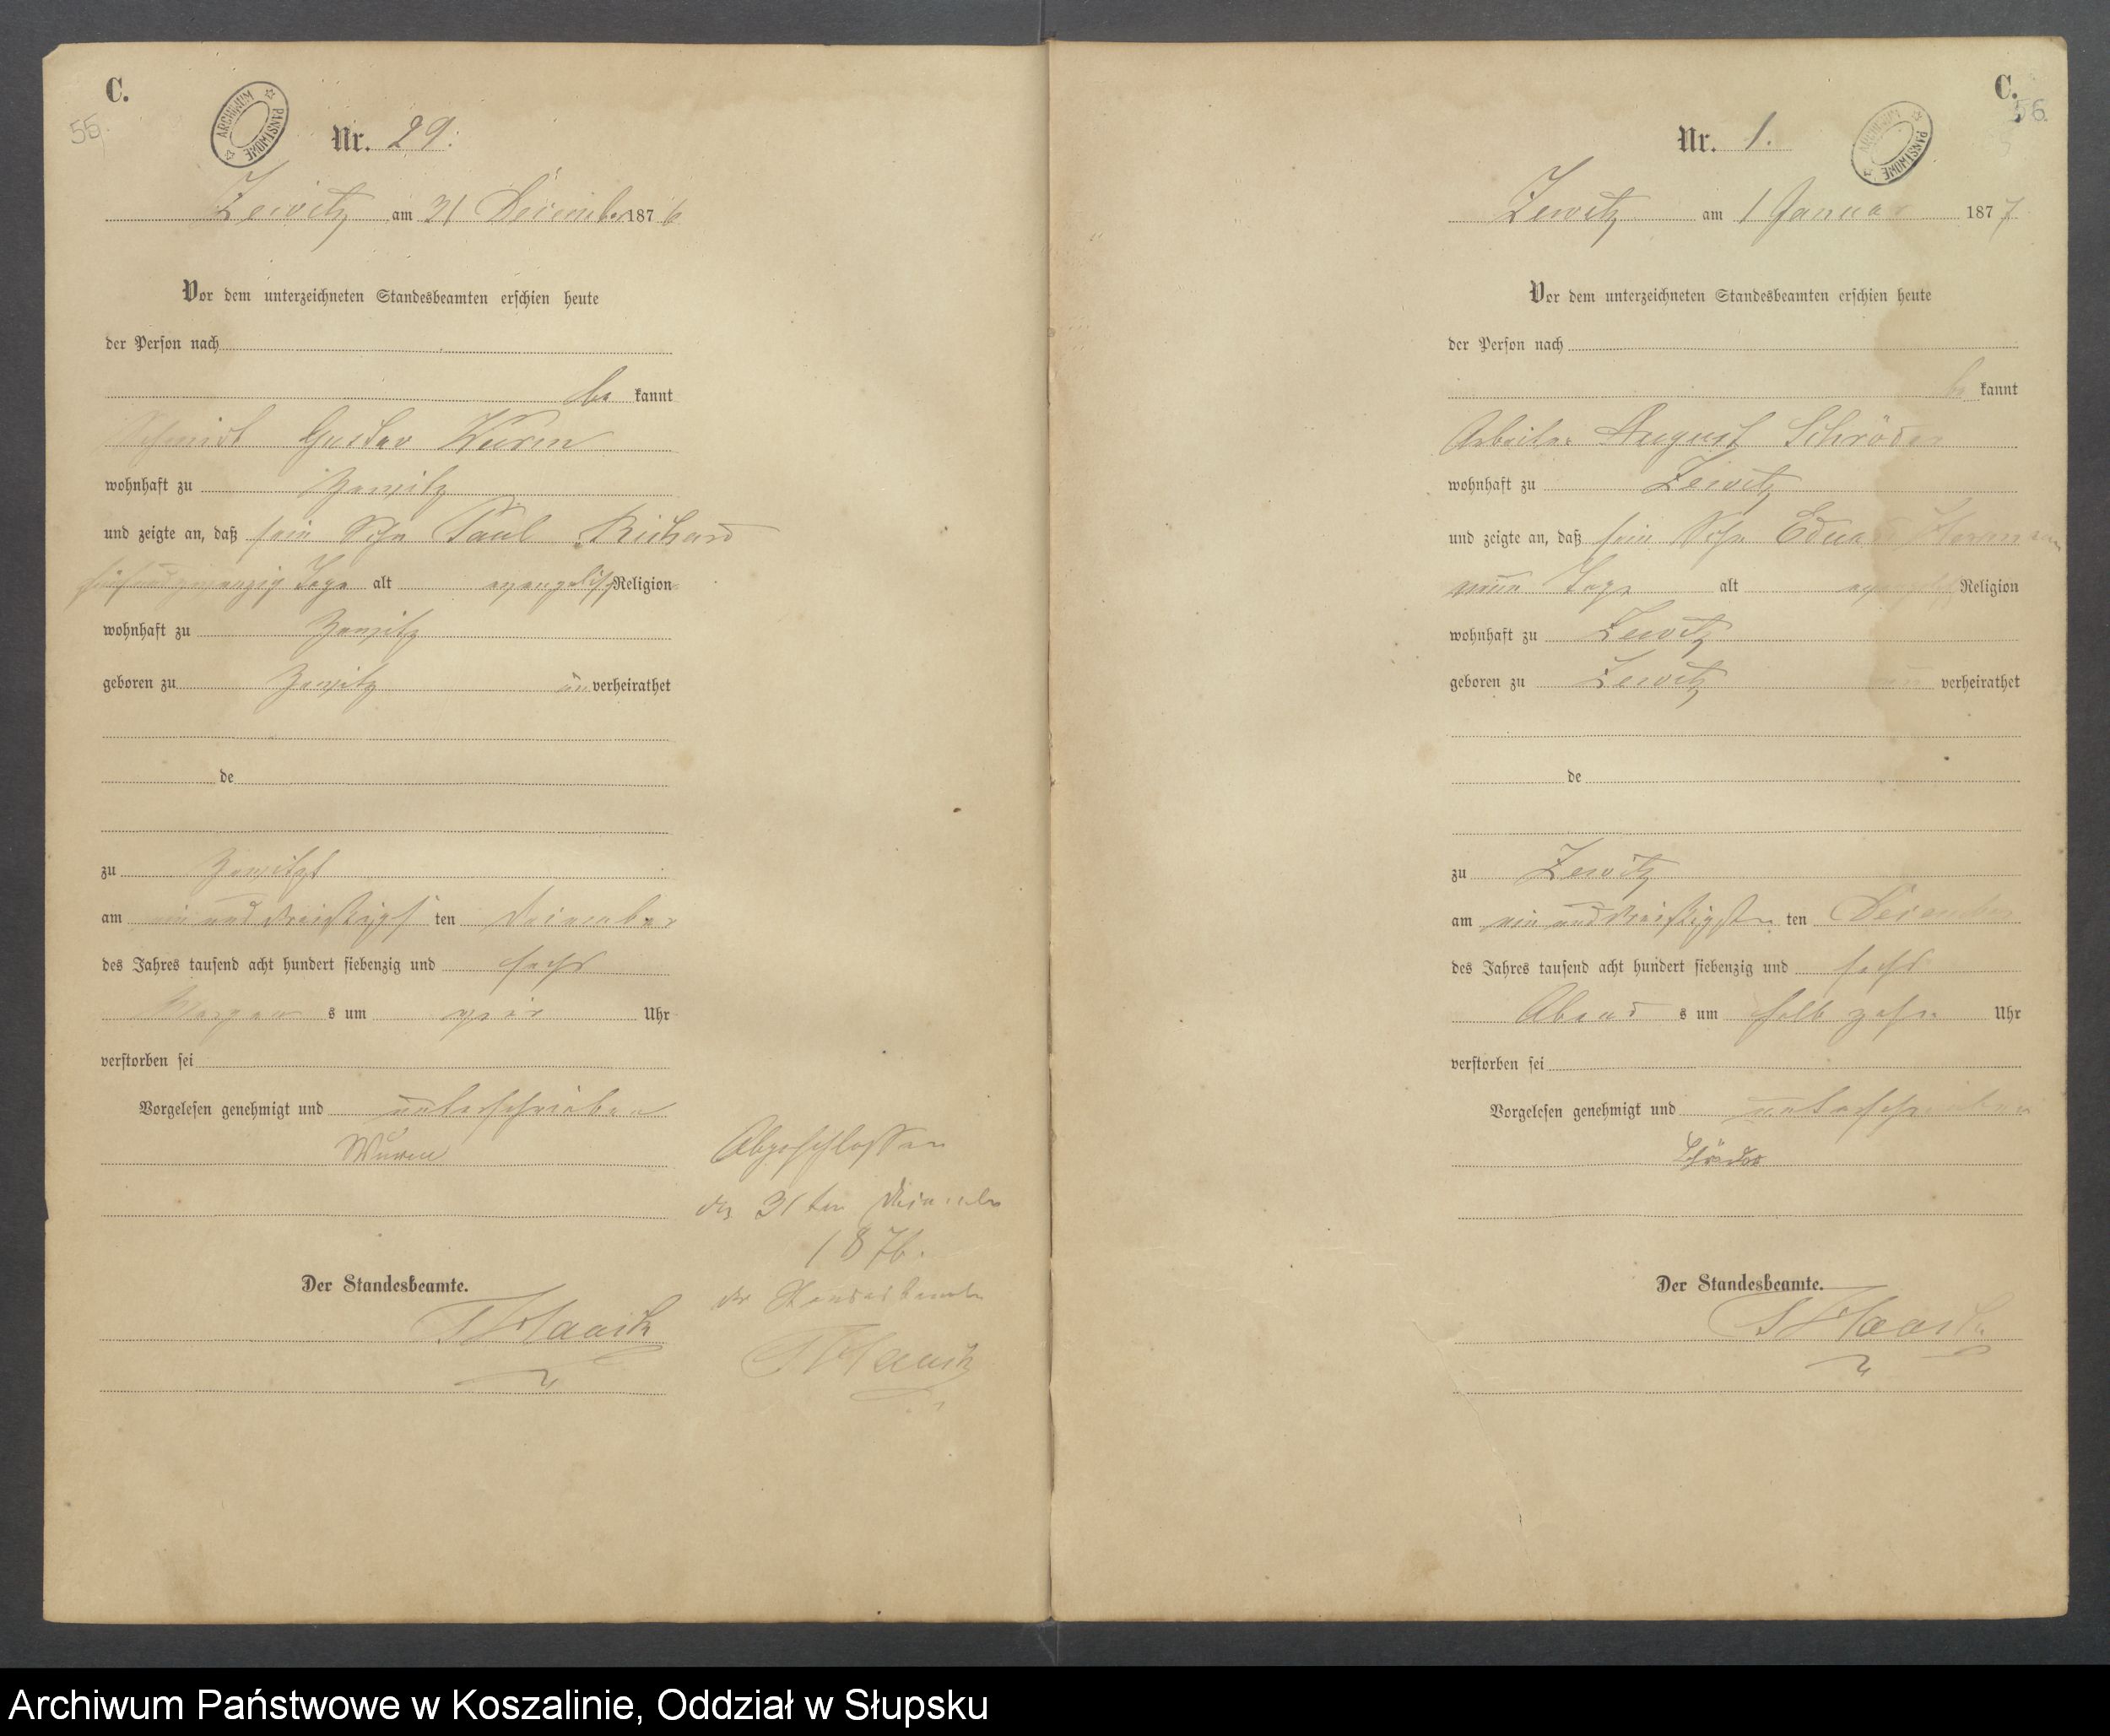 C.
55.
ARCHIWUM PAŃSTWOWE
Nr. 29.
Zewitz am 31 December 1876
Vor dem unterzeichneten Standesbeamten erschien heute
der Person nach
be kannt
Schmidt Gustav
wohnhaft zu Zewitz
und zeigte an, daß sein Sohn Paul Richard
fünfundzwanzig Tage alt evangelisch Religion
wohnhaft zu Zewitz
geboren zu Zewitz un verheirathet
de
zu Zewitz
am ein und dreißigst ten December
des Jahres tausend acht hundert siebenzig und sechs
Morgen s um Uhr
verstorben sei
Vorgelesen genehmigt und unterschrieben
Abgeschlossen
den 31ten December
1876.
der Standesbeamte
Der Standesbeamte.
C.
56.
ARCHIWUM PAŃSTWOWE
Nr. 1.
Zewitz am 1 Januar 1877
Vor dem unterzeichneten Standesbeamten erschien heute
der Person nach
be kannt
Arbeiter August Schröder
wohnhaft zu Zewitz
und zeigte an, daß sein Sohn Eduard Hermann
neun Tage alt evangelisch Religion
wohnhaft zu Zewitz
geboren zu Zewitz un verheirathet
de
zu Zewitz
am ein und dreißigsten ten December
des Jahres tausend acht hundert siebenzig und sechs
Abend s um halb zehn Uhr
verstorben sei
Vorgelesen genehmigt und unterschrieben
Schröder
Der Standesbeamte.
Archiwum Państwowe w Koszalinie, Oddział w Słupsku